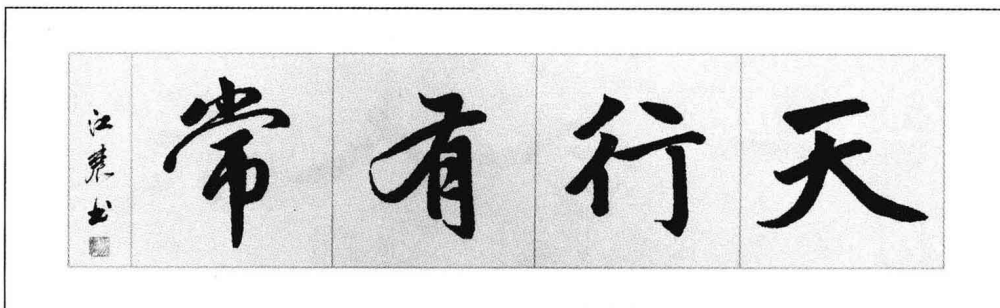 天行有常
江
书